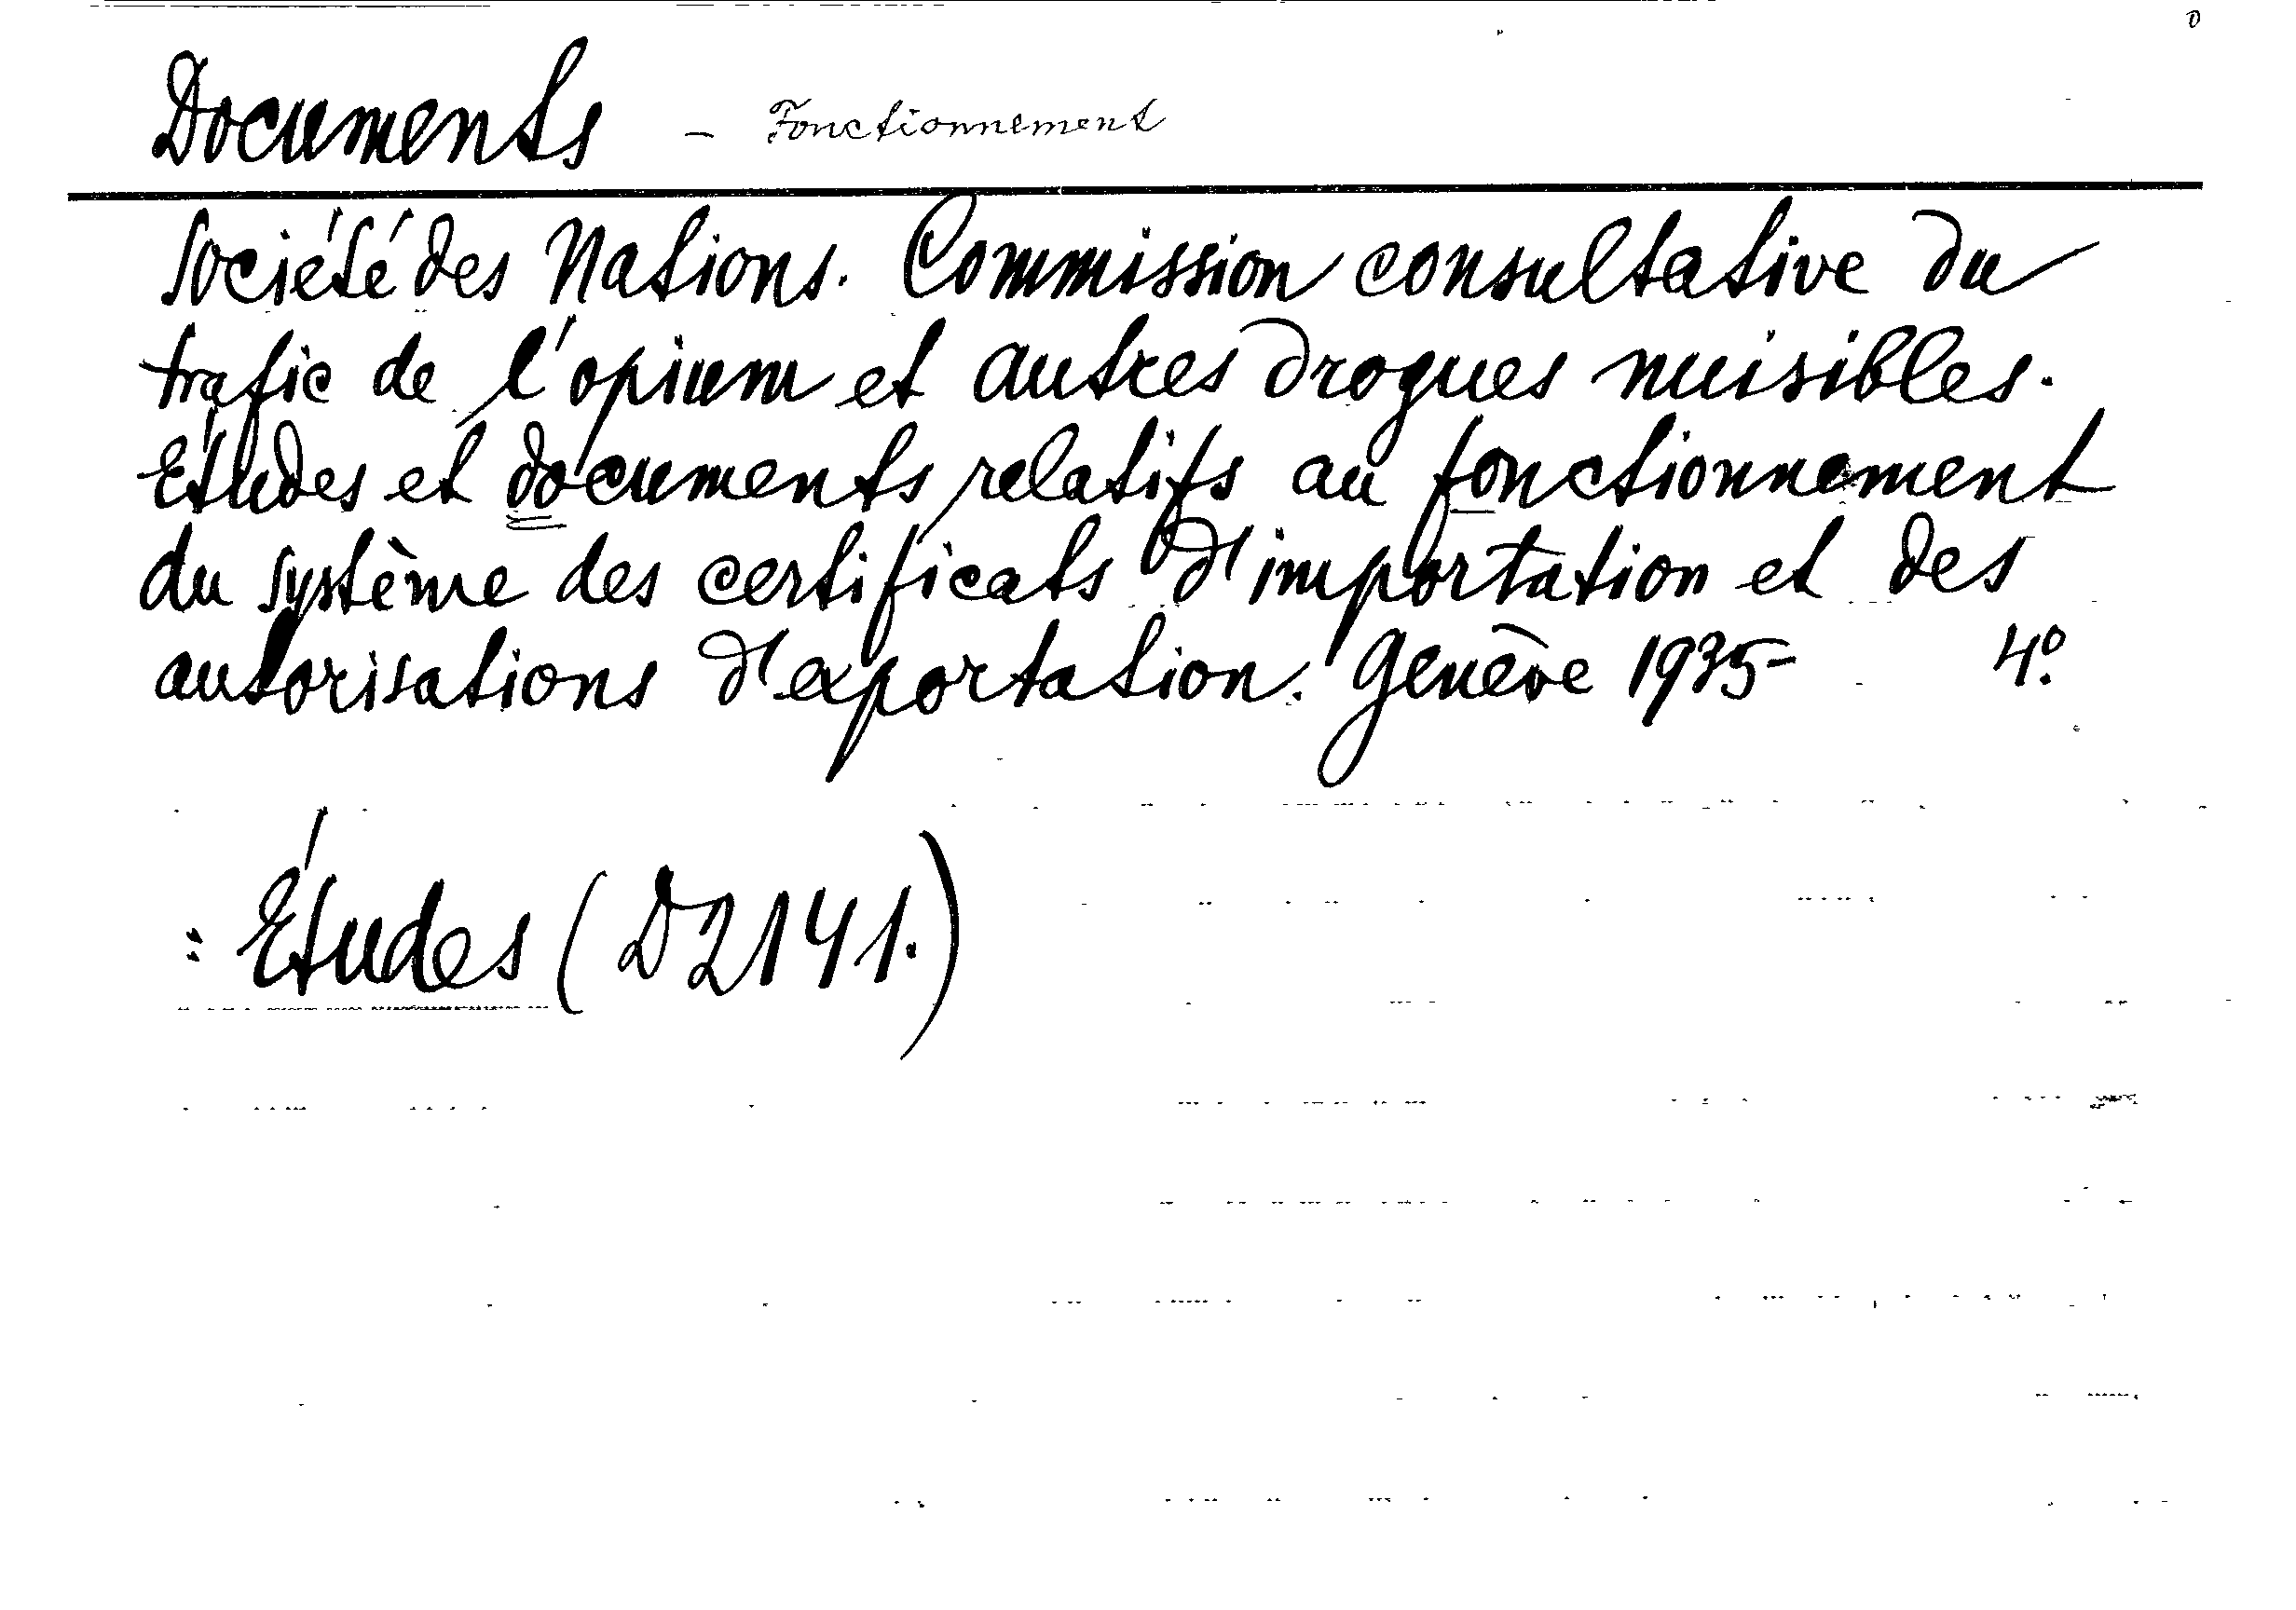 Documents - Fonctionnement
Société des Nations. Commission consultative du
trafic de l'opium et autres drogues nuisibles.
Études et documents relatifs au fonctionnement
du système des certificats d'importation et des
autorisations d'exportation. Genève 1935- 4º.
: Études (D2141.)